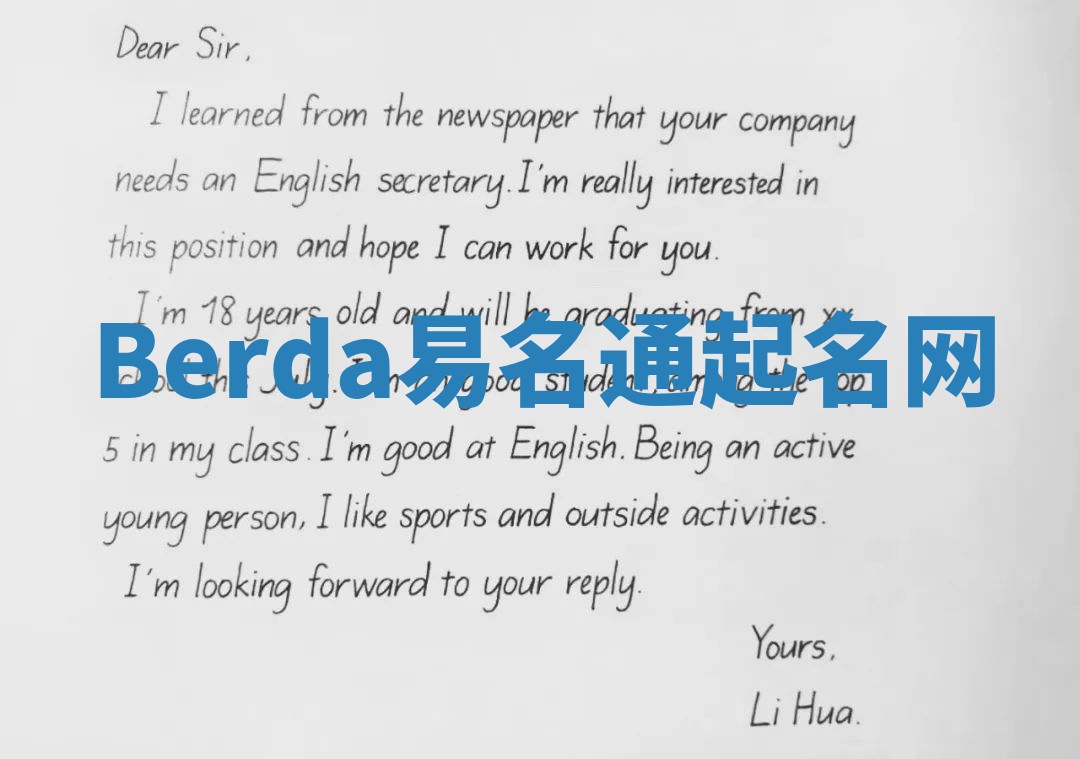 Dear Sir,
I learned from the newspaper that your company
needs an English secretary. I'm really interested in
this position and hope I can work for you.
I'm 18 years old and will be graduating from xx
Berda易名通起名网
this July. I'm good student, among the top
5 in my class. I'm good at English. Being an active
young person, I like sports and outside activities.
I'm looking forward to your reply.
Yours,
Li Hua.